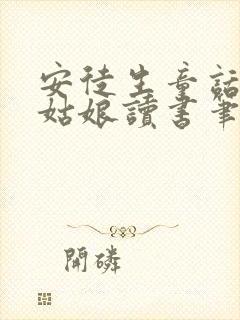 安徒生童話
姑娘讀書筆
開磷